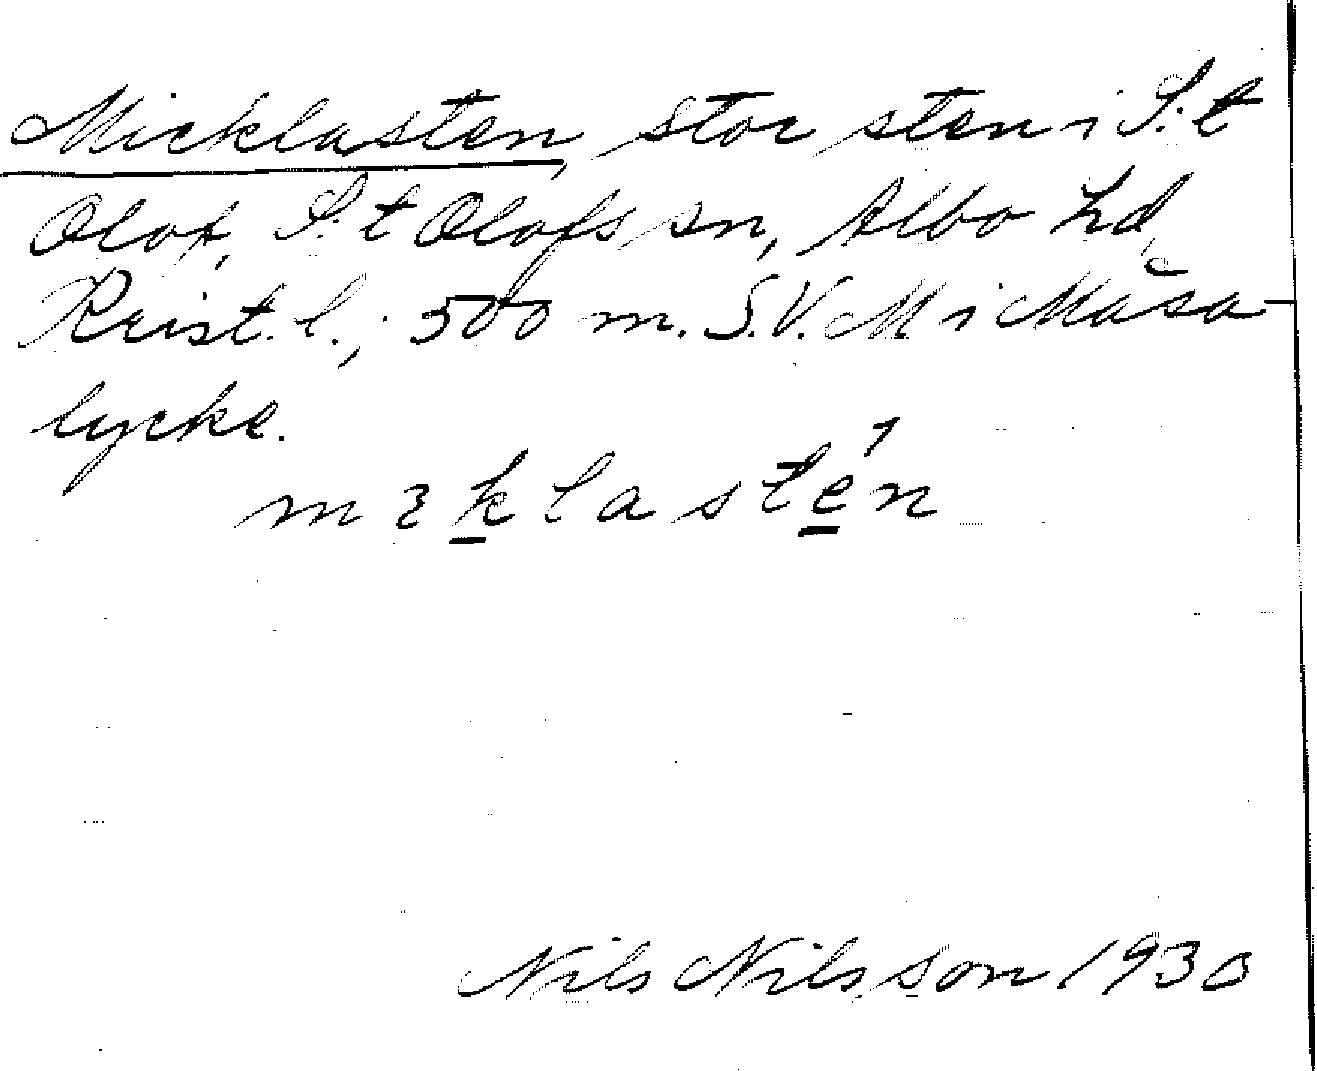 Micklasten, stor sten i S:t
Olof, S:t Olofs sn, Albo hd,
Krist. l.; 500 m. S.V. M i Måsa-
lycke.
mɛklastén
Nils Nilsson 1930